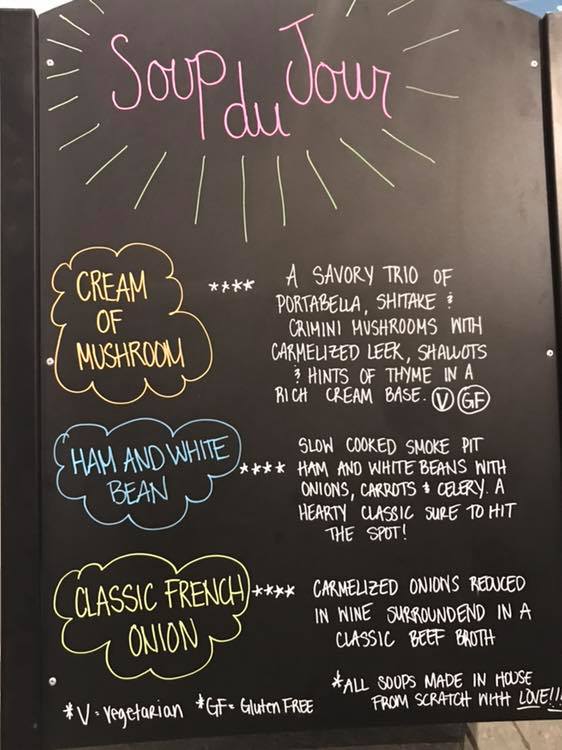 Soup du Jour
CREAM
OF
MUSHROOM
****
A SAVORY TRIO OF
PORTABELLA, SHITAKE &
CRIMINI MUSHROOMS WITH
CARMELIZED LEEK, SHALLOTS
& HINTS OF THYME IN A
RICH CREAM BASE. V GF
HAM AND WHITE
BEAN
****
SLOW COOKED SMOKE PIT
HAM AND WHITE BEANS WITH
ONIONS, CARROTS & CELERY. A
HEARTY CLASSIC SURE TO HIT
THE SPOT!
CLASSIC FRENCH
ONION
****
CARMELIZED ONIONS REDUCED
IN WINE SURROUNDEND IN A
CLASSIC BEEF BROTH
*ALL SOUPS MADE IN HOUSE
FROM SCRATCH WITH LOVE!!!
*V = Vegetarian *GF = Gluten FREE